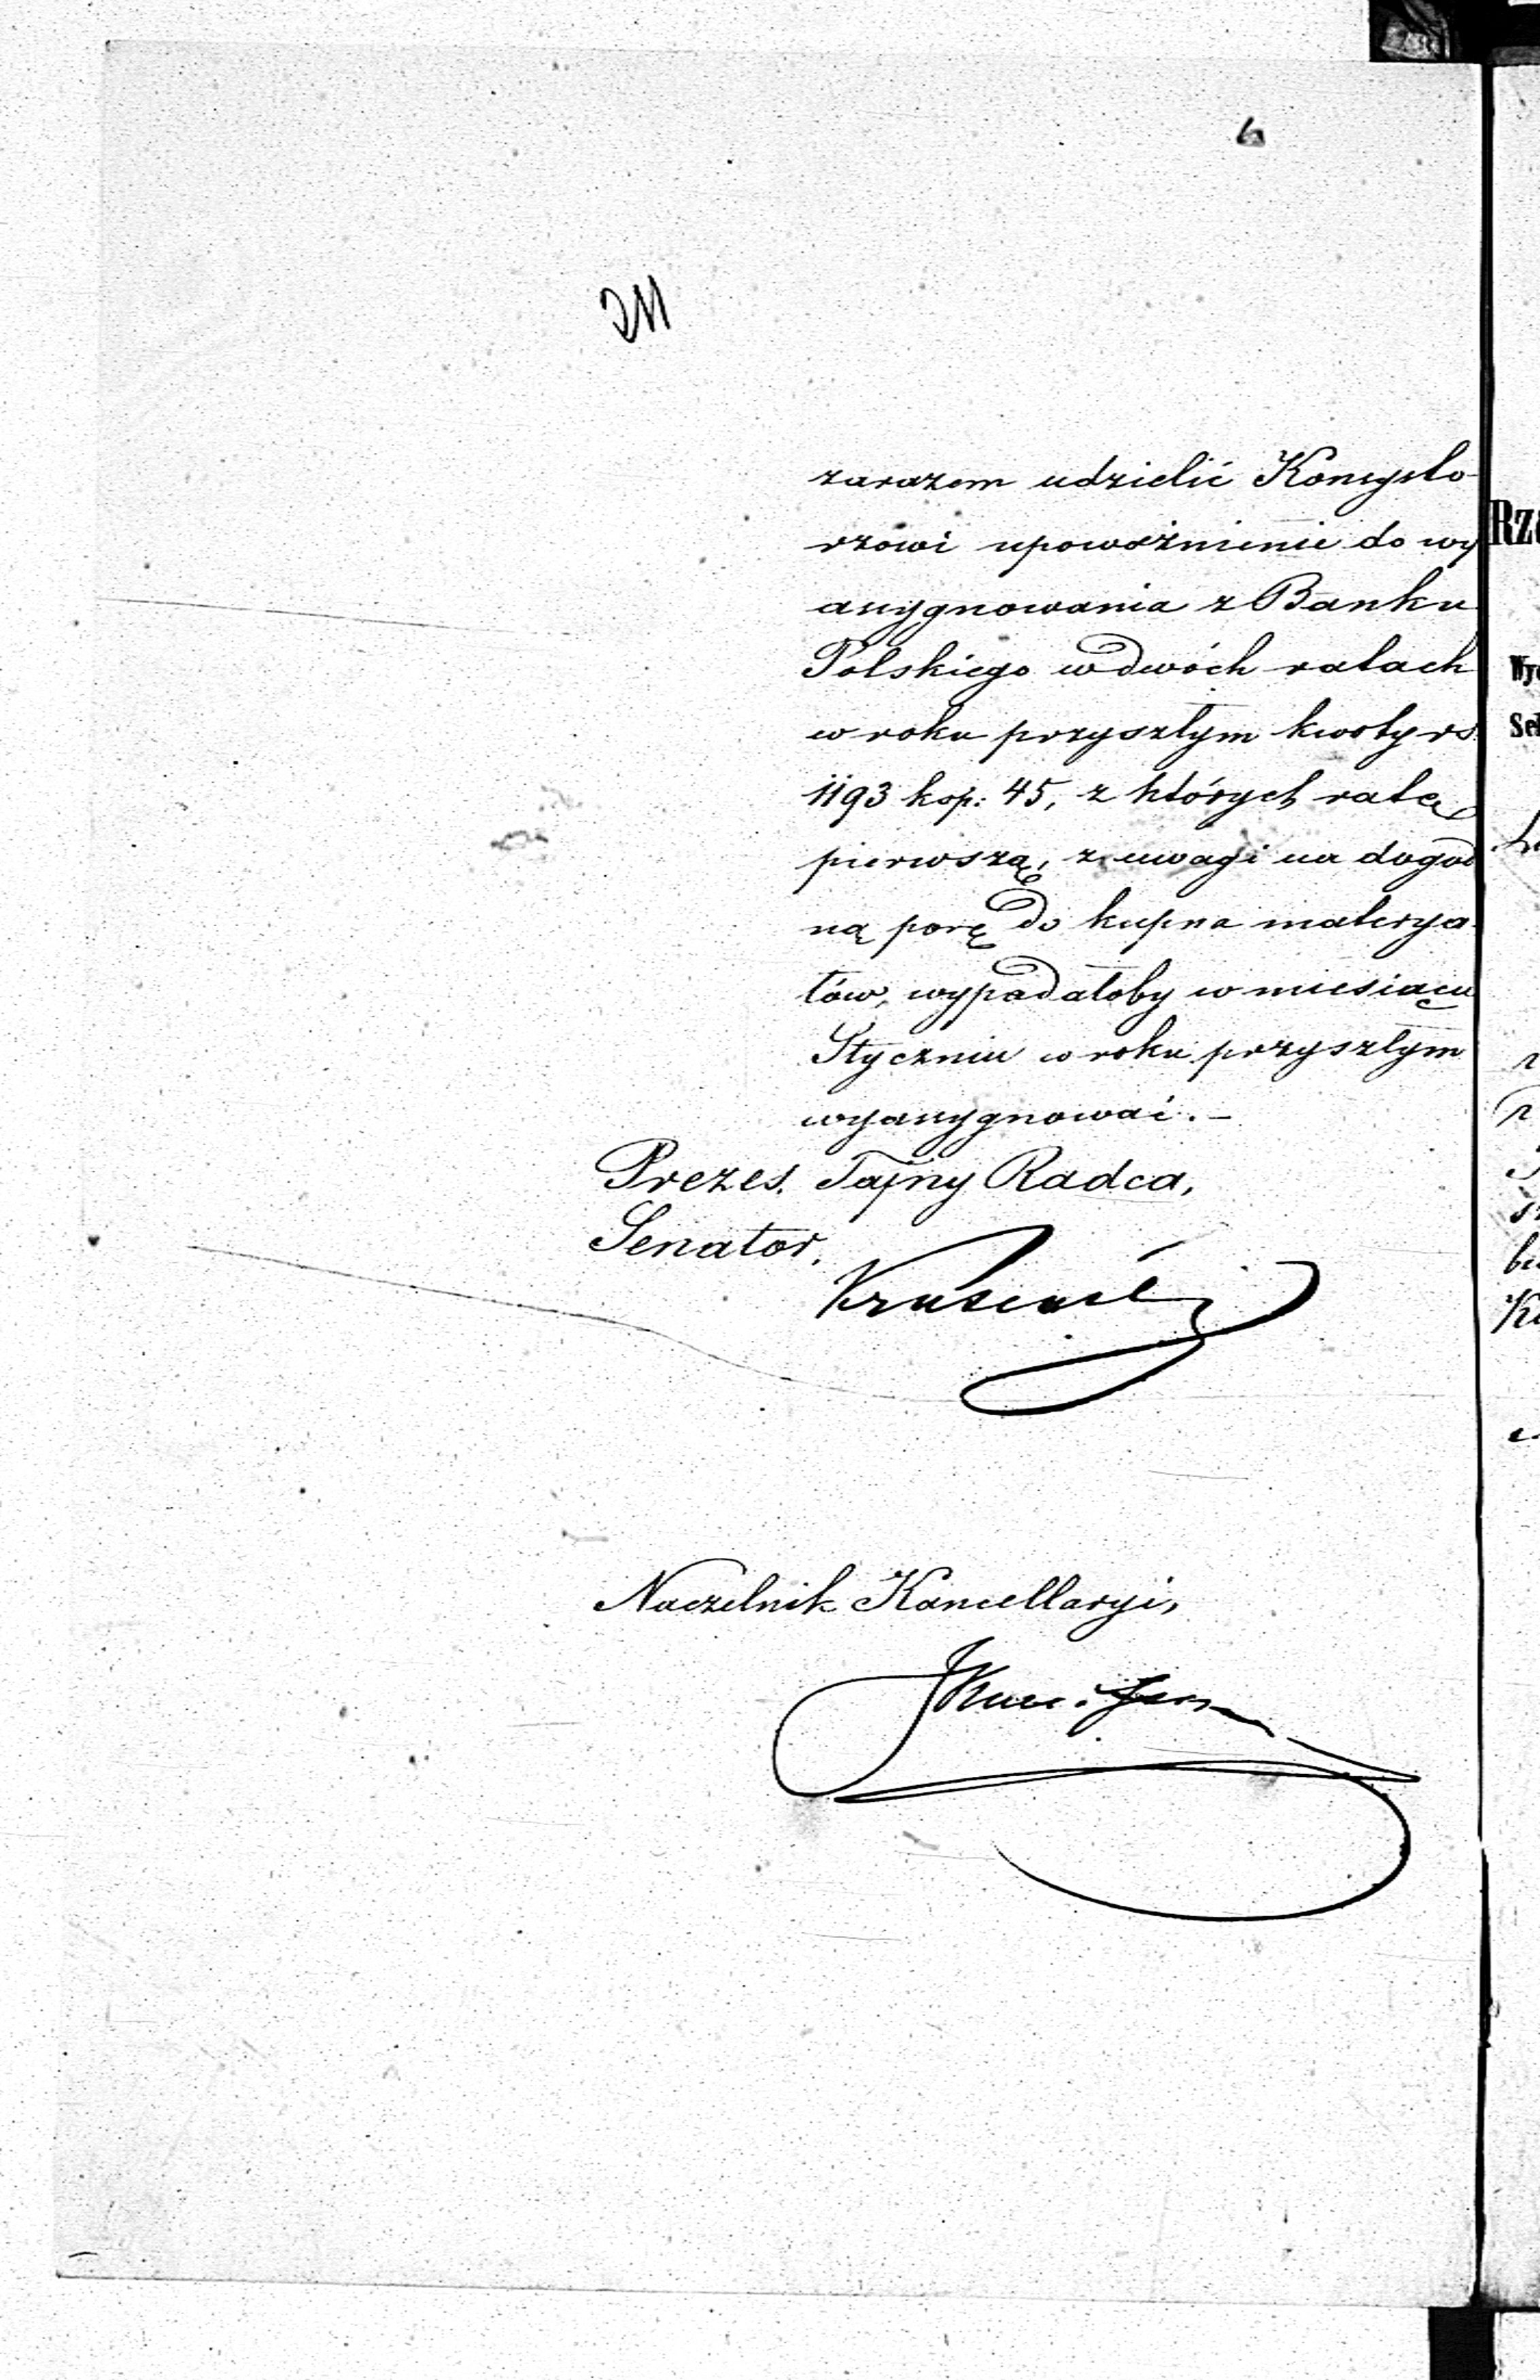 6
211
zarazem udzielić Konsysto-
rzowi upoważnienie do wy
asygnowania z Banku
Polskiego w dwóch ratach
w roku przyszłym kwoty rs.
1193 kop: 45, z których ratę
pierwszą, z uwagi na dogod
ną porę do kupna materya-
łów, wypadałoby w miesiącu
Styczniu w roku przyszłym
wyasygnować. –
Prezes, Tajny Radca,
Senator,
Naczelnik Kancellaryi,